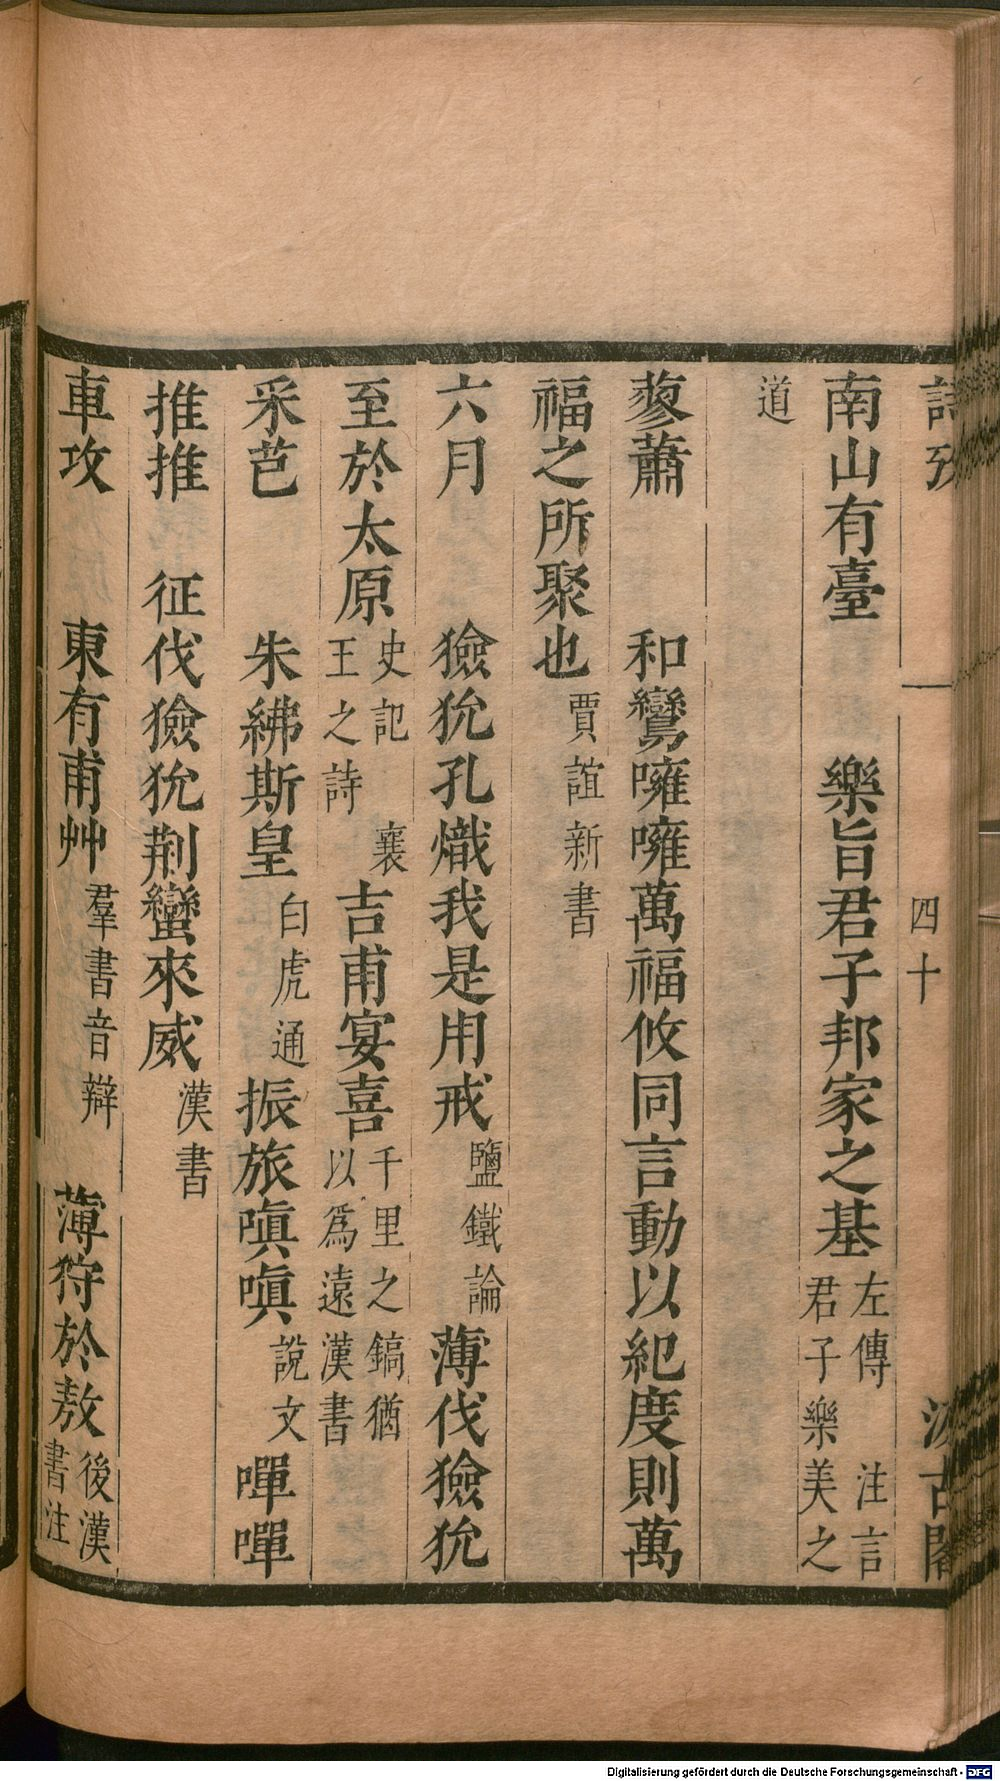 詩攷 四十 汲古閣
南山有臺 樂旨君子邦家之基 左傳 注言君子樂美之
道
蓼蕭 和鸞噰噰萬福攸同言動以紀度則萬
福之所聚也 賈誼新書
六月 獫狁孔熾我是用戒 鹽鐵論 薄伐獫狁
至於太原 史記 襄王之詩 吉甫宴喜 千里之鎬猶以爲遠漢書
采芑 朱紼斯皇 白虎通 振旅嗔嗔 說文 嘽嘽
推推 征伐獫狁荆蠻來威 漢書
車攻 東有甫艸 羣書音辯 薄狩於敖 後漢書注
Digitalisierung gefördert durch die Deutsche Forschungsgemeinschaft - DFG